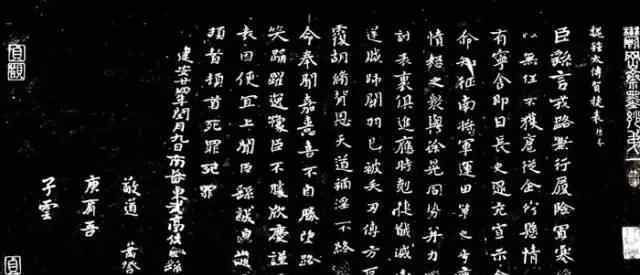 魏鍾太傅賀捷表
臣繇言戎路兼行履險冒寒
以無任不獲扈從企佇懸情
有寧舍即日長史逯充宣示令
命知征南將軍運田單之奇
憤怒之衆與徐晃同勢并力
討表裏俱進應時剋捷馘滅
逆賊帥關羽已被矢刃傅方反
覆胡脩背恩天道禍淫不終
命奉聞嘉憙喜不自勝望路
笑踊躍逸豫臣不勝欣慶謹
表因便宜上聞臣繇誠皇誠
頓首頓首死罪死罪
建安廿四年閏月九日南蕃東武亭侯臣繇
敬道
庾肩吾
子雲
貞觀